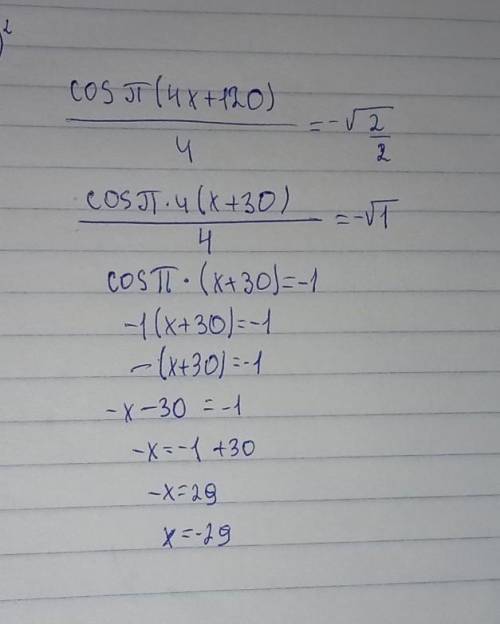 2
cos π(4x+120)/4 = -√(2/2)
cos π·4(x+30)/4 = -√1
cos π·(x+30)=-1
-1(x+30)=-1
-(x+30)=-1
-x-30=-1
-x=-1+30
-x=29
x=-29